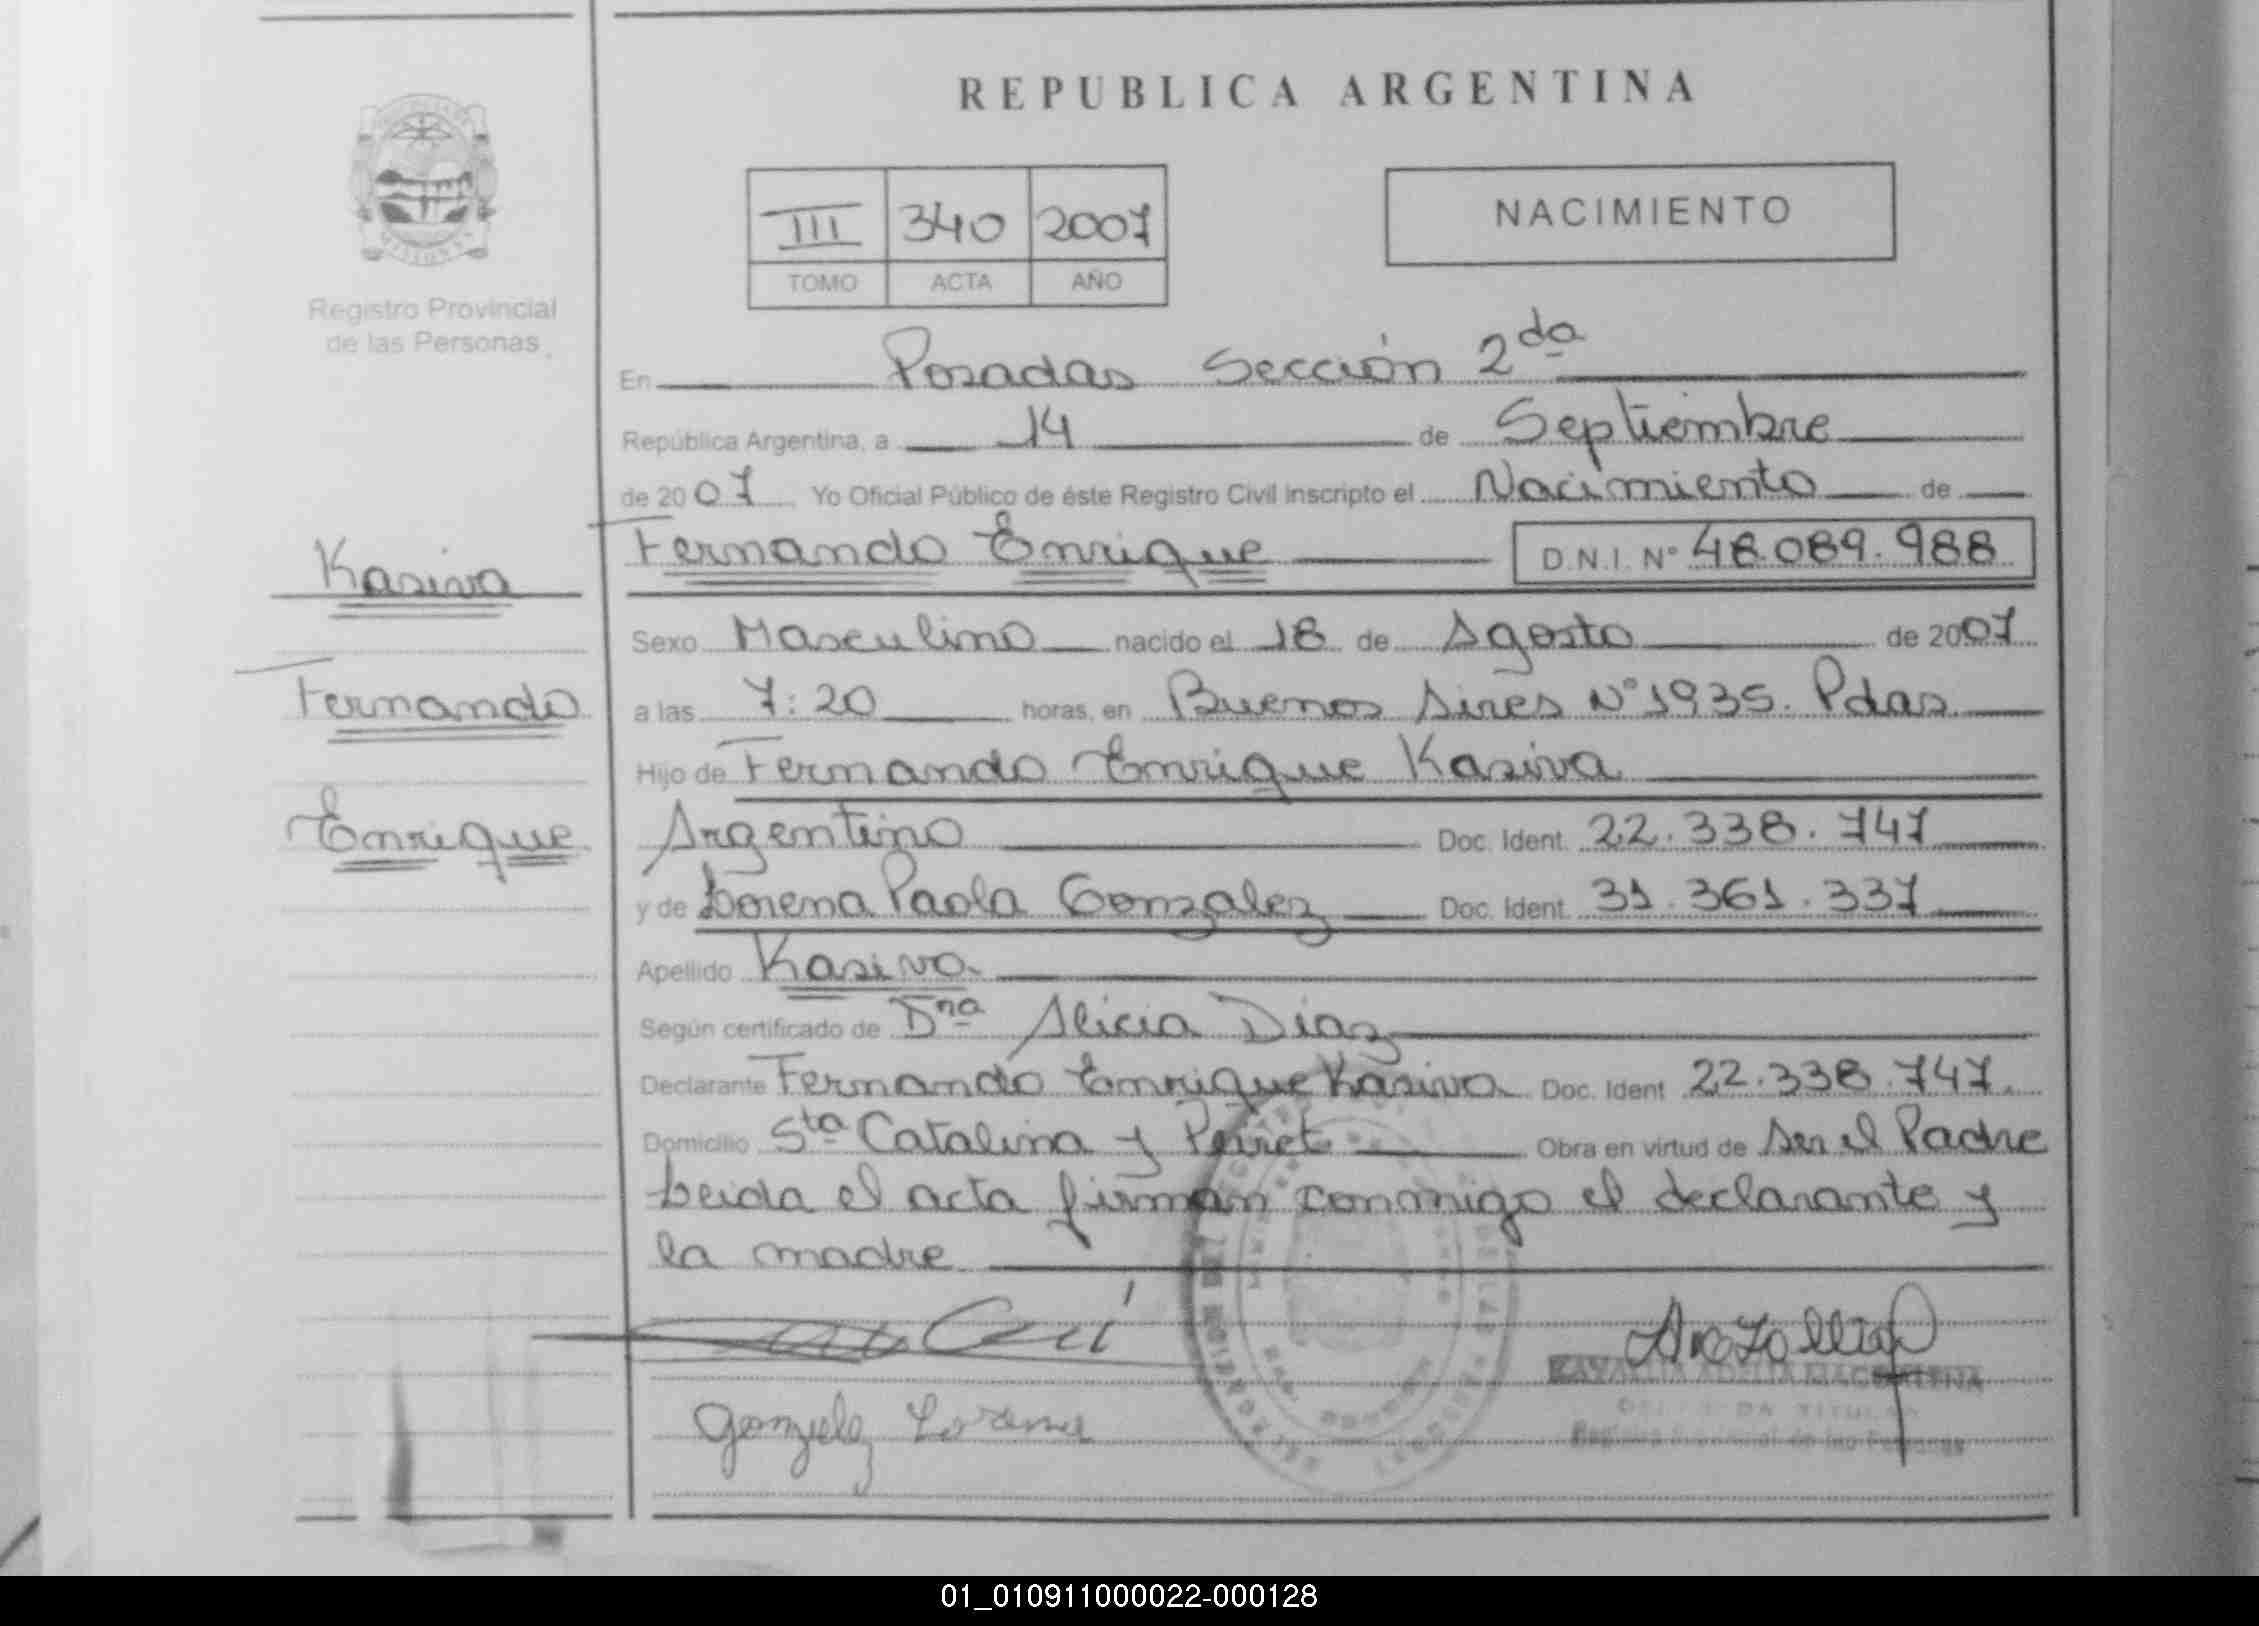 REPUBLICA ARGENTINA
MISIONES
Registro Provincial
de las Personas
III 340 2007
TOMO ACTA AÑO
NACIMIENTO
En Posadas Sección 2da
República Argentina, a 14 de Septiembre
de 2007 Yo Oficial Público de éste Registro Civil inscripto el Nacimiento de
Fernando Enrique D.N.I. Nº 48.089.988
Kasiva
Fernando
Enrique
Sexo Masculino nacido el 18 de Agosto de 2007
a las 7:20 horas, en Buenos Aires Nº 1935. Pdas
Hijo de Fernando Enrique Kasiva
Argentino Doc. Ident. 22.338.747
y de Lorena Paola Gonzalez Doc. Ident. 31.361.337
Apellido Kasiva
Según certificado de Dra Alicia Diaz
Declarante Fernando Enrique Kasiva Doc. Ident 22.338.747.
Domicilio Sta Catalina y Perret Obra en virtud de ser el Padre
Leida el acta firman conmigo el declarante y
la madre
Gonzalez Lorena
MAGDALENA
TITULAR
Registro Provincial de las Personas
01_010911000022-000128